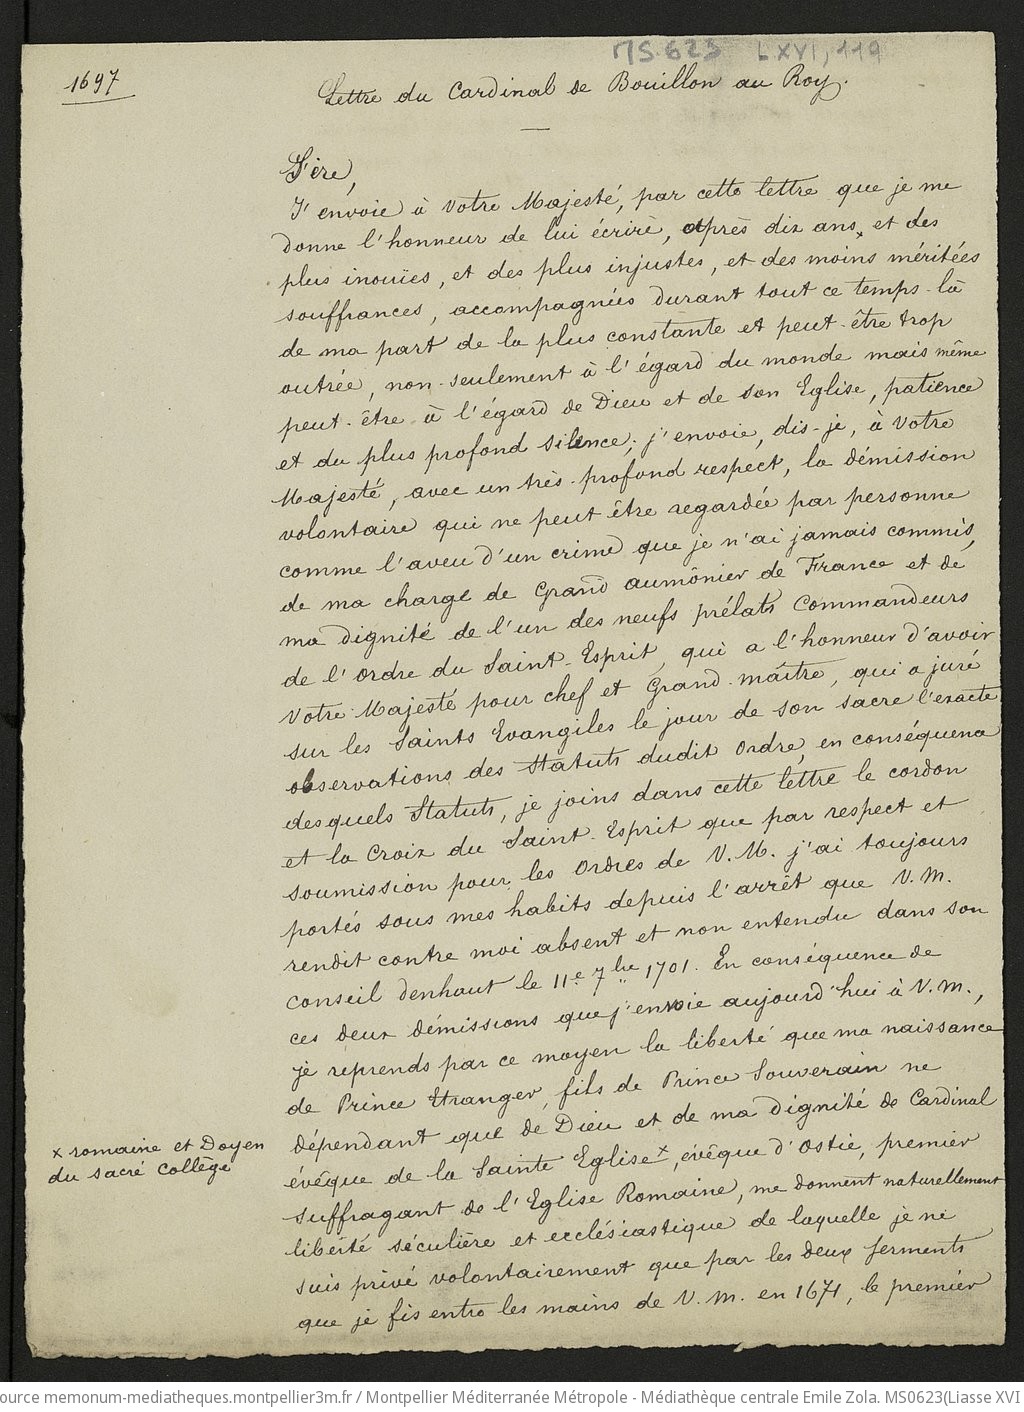 MS 623 LXVI, 119
1697
Lettre du Cardinal de Bouillon au Roy.
Sire,
J'envoie à Votre Majesté, par cette lettre que je me
donne l'honneur de lui écrire, après dix ans, et des
plus inouies, et des plus injustes, et des moins méritées
souffrances, accompagnées durant tout ce temps-là
de ma part de la plus constante et peut-être trop
outrée, non-seulement à l'égard du monde mais même
peut-être à l'égard de Dieu et de son Eglise, patience
et du plus profond silence; j'envoie, dis-je, à Votre
Majesté, avec un très-profond respect, la démission
volontaire qui ne peut être regardée par personne
comme l'aveu d'un crime que je n'ai jamais commis,
de ma charge de Grand aumônier de France et de
ma dignité de l'un des neufs prélats Commandeurs
de l'ordre du Saint-Esprit, qui a l'honneur d'avoir
Votre Majesté pour chef et Grand-maître, qui a juré
sur les Saints Evangiles le jour de son sacre l'exacte
observations des statuts dudit ordre, en conséquence
desquels Statuts, je joins dans cette lettre le cordon
et la Croix du Saint-Esprit que par respect et
soumission pour les ordres de V. M. j'ai toujours
portés sous mes habits depuis l'arrêt que V. M.
rendit contre moi absent et non entendu dans son
conseil d'enhaut le 11e 7bre 1701. En conséquence de
ces deux démissions que j'envoie aujourd'hui à V. M.,
je reprends par ce moyen la liberté que ma naissance
de Prince Etranger, fils de Prince Souverain ne
dépendant que de Dieu et de ma dignité de Cardinal
évêque de la Sainte Eglise x, évêque d'Ostie, premier
x romaine et Doyen
du sacré collège
suffragant de l'Eglise Romaine, me donnent naturellement
liberté séculière et ecclésiastique de laquelle je ne
suis privé volontairement que par les deux serments
que je fis entre les mains de V. M. en 1671, le premier
ource memonum-mediatheques.montpellier3m.fr / Montpellier Méditerranée Métropole - Médiathèque centrale Emile Zola. MS0623(Liasse XVI